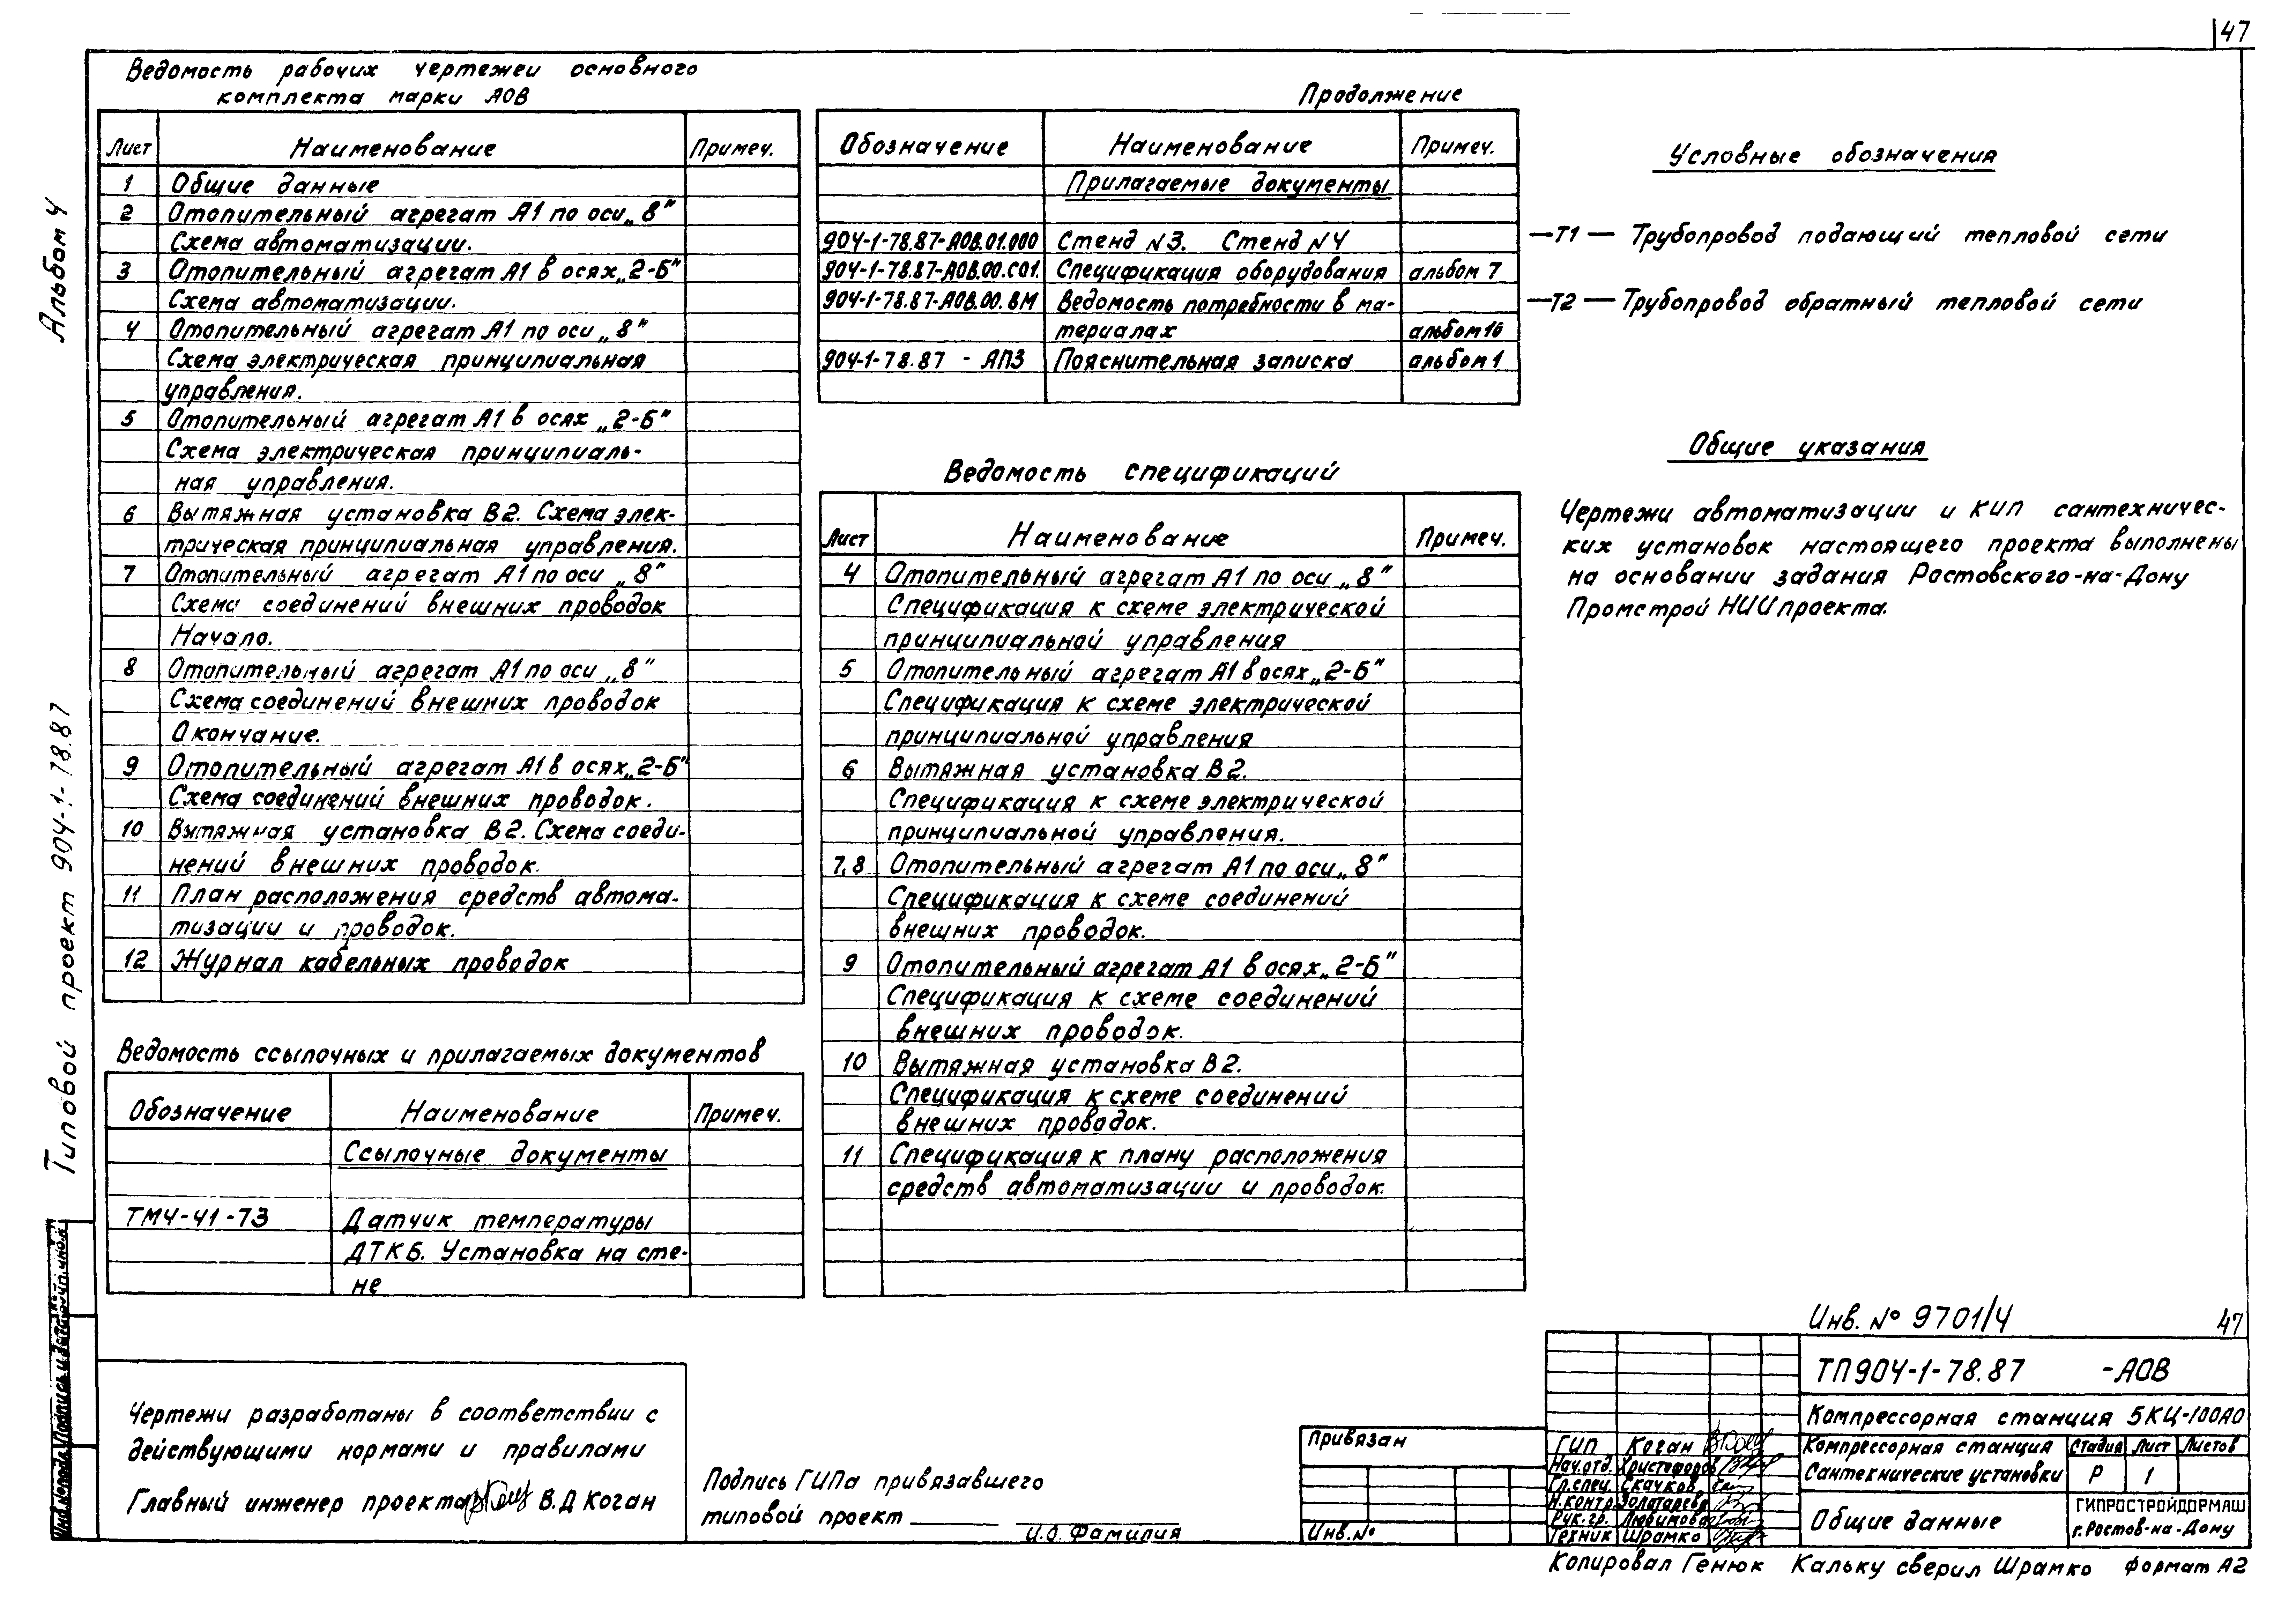 47
Альбом 4
Типовой проект 904-1-78.87
Ведомость рабочих чертежей основного
комплекта марки АОВ
Лист Наименование Примеч.
1 Общие данные
2 Отопительный агрегат А1 по оси „8"
Схема автоматизации.
3 Отопительный агрегат А1 в осях „2-Б"
Схема автоматизации.
4 Отопительный агрегат А1 по оси „8"
Схема электрическая принципиальная
управления.
5 Отопительный агрегат А1 в осях „2-Б"
Схема электрическая принципиаль-
ная управления.
6 Вытяжная установка В2. Схема элек-
трическая принципиальная управления.
7 Отопительный агрегат А1 по оси „8"
Схема соединений внешних проводок
Начало.
8 Отопительный агрегат А1 по оси „8"
Схема соединений внешних проводок
Окончание.
9 Отопительный агрегат А1 в осях „2-Б"
Схема соединений внешних проводок.
10 Вытяжная установка В2. Схема соеди-
нений внешних проводок.
11 План расположения средств автома-
тизации и проводок.
12 Журнал кабельных проводок
Ведомость ссылочных и прилагаемых документов
Обозначение Наименование Примеч.
Ссылочные документы
ТМ4-41-73 Датчик температуры
ДТКБ. Установка на сте-
не
Чертежи разработаны в соответствии с
действующими нормами и правилами
Главный инженер проекта В.Д Коган
Продолжение
Обозначение Наименование Примеч.
Прилагаемые документы
904-1-78.87-АОВ.01.000 Стенд N3. Стенд N4
904-1-78.87-АОВ.00.СО1. Спецификация оборудования альбом 7
904-1-78.87-АОВ.00.ВМ Ведомость потребности в ма-
териалах альбом 10
904-1-78.87 - АПЗ Пояснительная записка альбом 1
Ведомость спецификаций
Лист Наименование Примеч.
4 Отопительный агрегат А1 по оси „8"
Спецификация к схеме электрической
принципиальной управления
5 Отопительный агрегат А1 в осях „2-Б"
Спецификация к схеме электрической
принципиальной управления
6 Вытяжная установка В2.
Спецификация к схеме электрической
принципиальной управления.
7,8 Отопительный агрегат А1 по оси „8"
Спецификация к схеме соединений
внешних проводок.
9 Отопительный агрегат А1 в осях „2-Б"
Спецификация к схеме соединений
внешних проводок.
10 Вытяжная установка В2.
Спецификация к схеме соединений
внешних проводок.
11 Спецификация к плану расположения
средств автоматизации и проводок.
Подпись ГИПа привязавшего
типовой проект
И.О. Фамилия
Условные обозначения
—Т1— Трубопровод подающий тепловой сети
—Т2— Трубопровод обратный тепловой сети
Общие указания
Чертежи автоматизации и КИП сантехничес-
ких установок настоящего проекта выполнены
на основании задания Ростовского-на-Дону
Промстрой НИИ проекта.
Инв. № 9701/4 47
Привязан
Инв. №
ТП904-1-78.87 -АОВ
Компрессорная станция 5КЦ-100А0
ГИП Коган
Нач.отд. Христофоров
Гл.спец. Скачков
Н.контр. Золотарева
Рук.гр. Любимова
Техник Шрамко
Компрессорная станция
Сантехнические установки
Стадия Лист Листов
Р 1
Общие данные
ГИПРОСТРОЙДОРМАШ
г. Ростов-на-Дону
Копировал Генюк Кальку сверил Шрамко формат А2